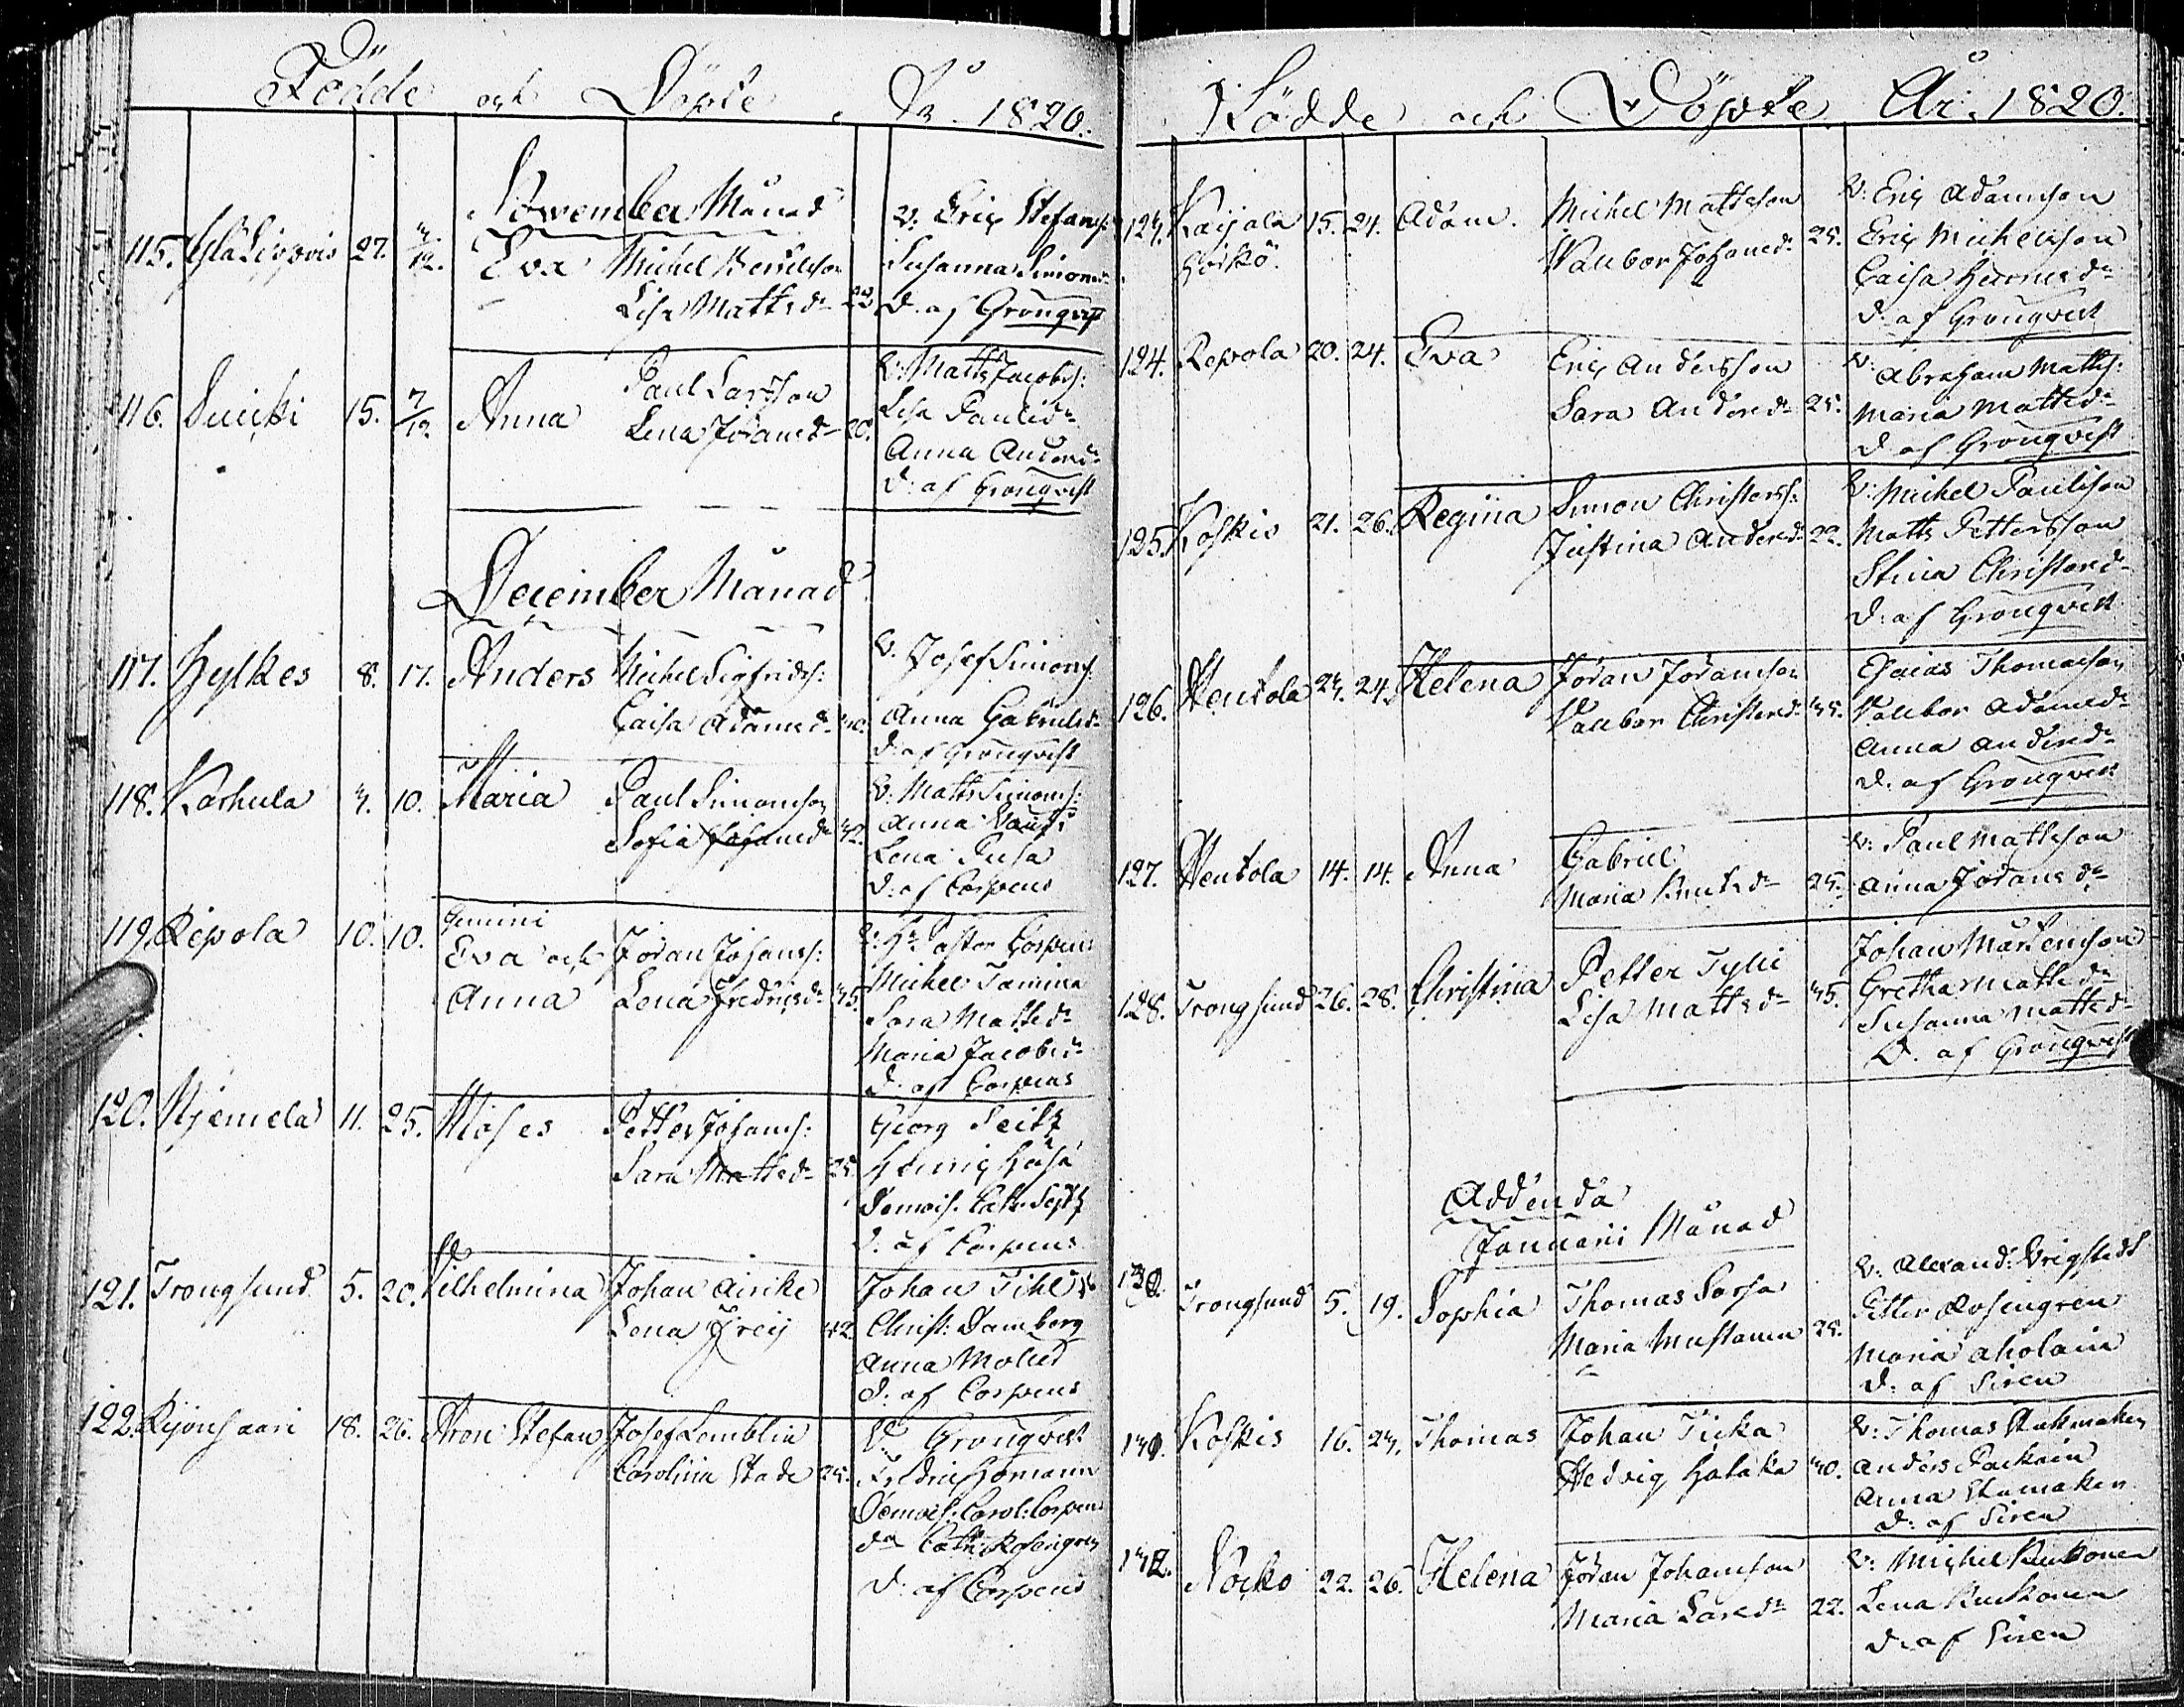 Födde och Döpte År 1820.
November Månad
115. 27. 3/12. Eva Michel Lisa Mattsd:r 22 V: Eric Stefans:
Susanna Simonsd:r
D: af Gronqvist
116. Suicki 15. 7/12. Anna Paul Larsson
Lena Johansd:r 20. V: Matts Jacobs:
Lisa Paulsd:r
Anna Andersd:r
D: af Gronqvist
December Månad
117. Hylkes 8. 17. Anders Michel Sigfrids:
Caisa Adamsd:r 40. V. Josef Simons:
Anna Gabrielsd:r
D: af Gronqvist
118. Karhula 4. 10. Maria Paul Simonson
Sofia Johansd:r 32. V: Matts Simons:
Anna
Lena
D: af Corpens
119. Repola 10. 10. Gemini
Eva och
Anna Jöran Johans:
Lena Fredricsd:r 35. V: H:r Pastor Corpens
Michel Tamina
Sara Mattsd:r
Maria Jacobsd:r
D: af Corpens
120. Njemela 11. 25. Moses Petter Johans:
Sara Mattsd:r 25. Georg Seitz
Demois. Cath. Seitz
D: af Corpens
121. Trongsund 5. 20. Vilhelmina Johan Airike
Lena Freij 42. Johan Tihl
Christ: Damberg
Anna
D: af Corpens
122. 18. 26. Aron Stefan Josef Lemblin
Carolina Stade 24. V. Gronqvist
Demois: Carol: Corpens
D:o Cath: Rosengren
D: af Corpens
Födde och Döpte År. 1820.
123. Kaijala 15. 24. Adam. Michel Mattsson
Valborg Johansd:r 25. V: Eric Adamson
Eric Michelsson
Caisa
D: af Gronqvist
124. Repola 20. 24. Eva Eric Andersson
Sara Andersd:r 25. V: Abraham Matts:
Maria Mattsd:r
D: af Gronqvist
125. Koskis 21. 26. Regina Simon Christers:
Justina Andersd:r 22. V: Michel Paulsson
Matts Pettersson
Stina Christersd:r
D: af Gronqvist
126. Hentola 23. 24. Helena Jöran Joransson
Valbor Christersd:r 35. Esaias Thomasson
Valbor Adamsd:r
Anna Andersd:r
D: af Gronqvist
127. Hentola 14. 14. Anna Gabriel
Maria Knutsd:r 25. V: Paul Mattsson
Anna Joransd:r
128. Trongsund 26. 28. Christina Petter Tylli
Lisa Mattsd:r 35. Johan Martenson
Gretha Mattsd:r
Susanna Mattsd:r
D. af Gronqvist
Addenda
Januarii Månad
Trongsund 5. 19. Sophia Thomas Sorsa
Maria Mustanen 28. V: Alexand: Brigstedt
Petter Rosengren
Maria Aholain
D: af Siren
Koskis 16. 23. Thomas Johan Ticka
Hedvig Halaka 30. V: Thomas
Anders Packain
Anna
D: af Siren
Nocko 22. 26. Helena Jöran Johansson
Maria Larsd:r 22. V: Michel Kukonen
Lena Kukonen
D: af Siren